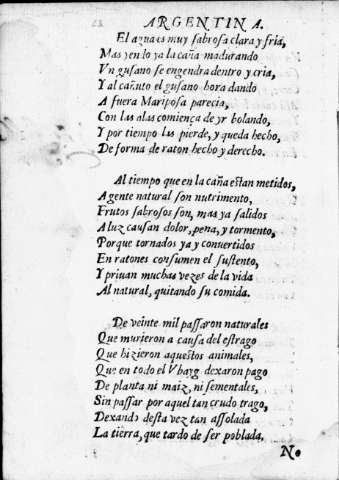 ARGENTINA.
El agua es muy sabrosa clara y fria,
Mas yendo ya la caña madurando
Vn gusano se engendra dentro y cria,
Y al cañuto el gusano hora dando
A fuera Mariposa parecia,
Con las alas comiença de yr bolando,
Y por tiempo las pierde, y queda hecho,
De forma de raton hecho y derecho.
Al tiempo que en la caña estan metidos,
A gente natural son nutrimento,
Frutos sabrosos son, mas ya salidos
A luz causan dolor, pena, y tormento,
Porque tornados ya y conuertidos
En ratones consumen el sustento,
Y priuan muchas vezes de la vida
Al natural, quitando su comida.
De veinte mil passaron naturales
Que murieron a causa del estrago
Que hizieron aquestos animales,
Que en todo el Vbayg dexaron pago
De planta ni maiz, ni sementales,
Sin passar por aquel tan crudo trago,
Dexando desta vez tan assolada
La tierra, que tardo de ser poblada.
No